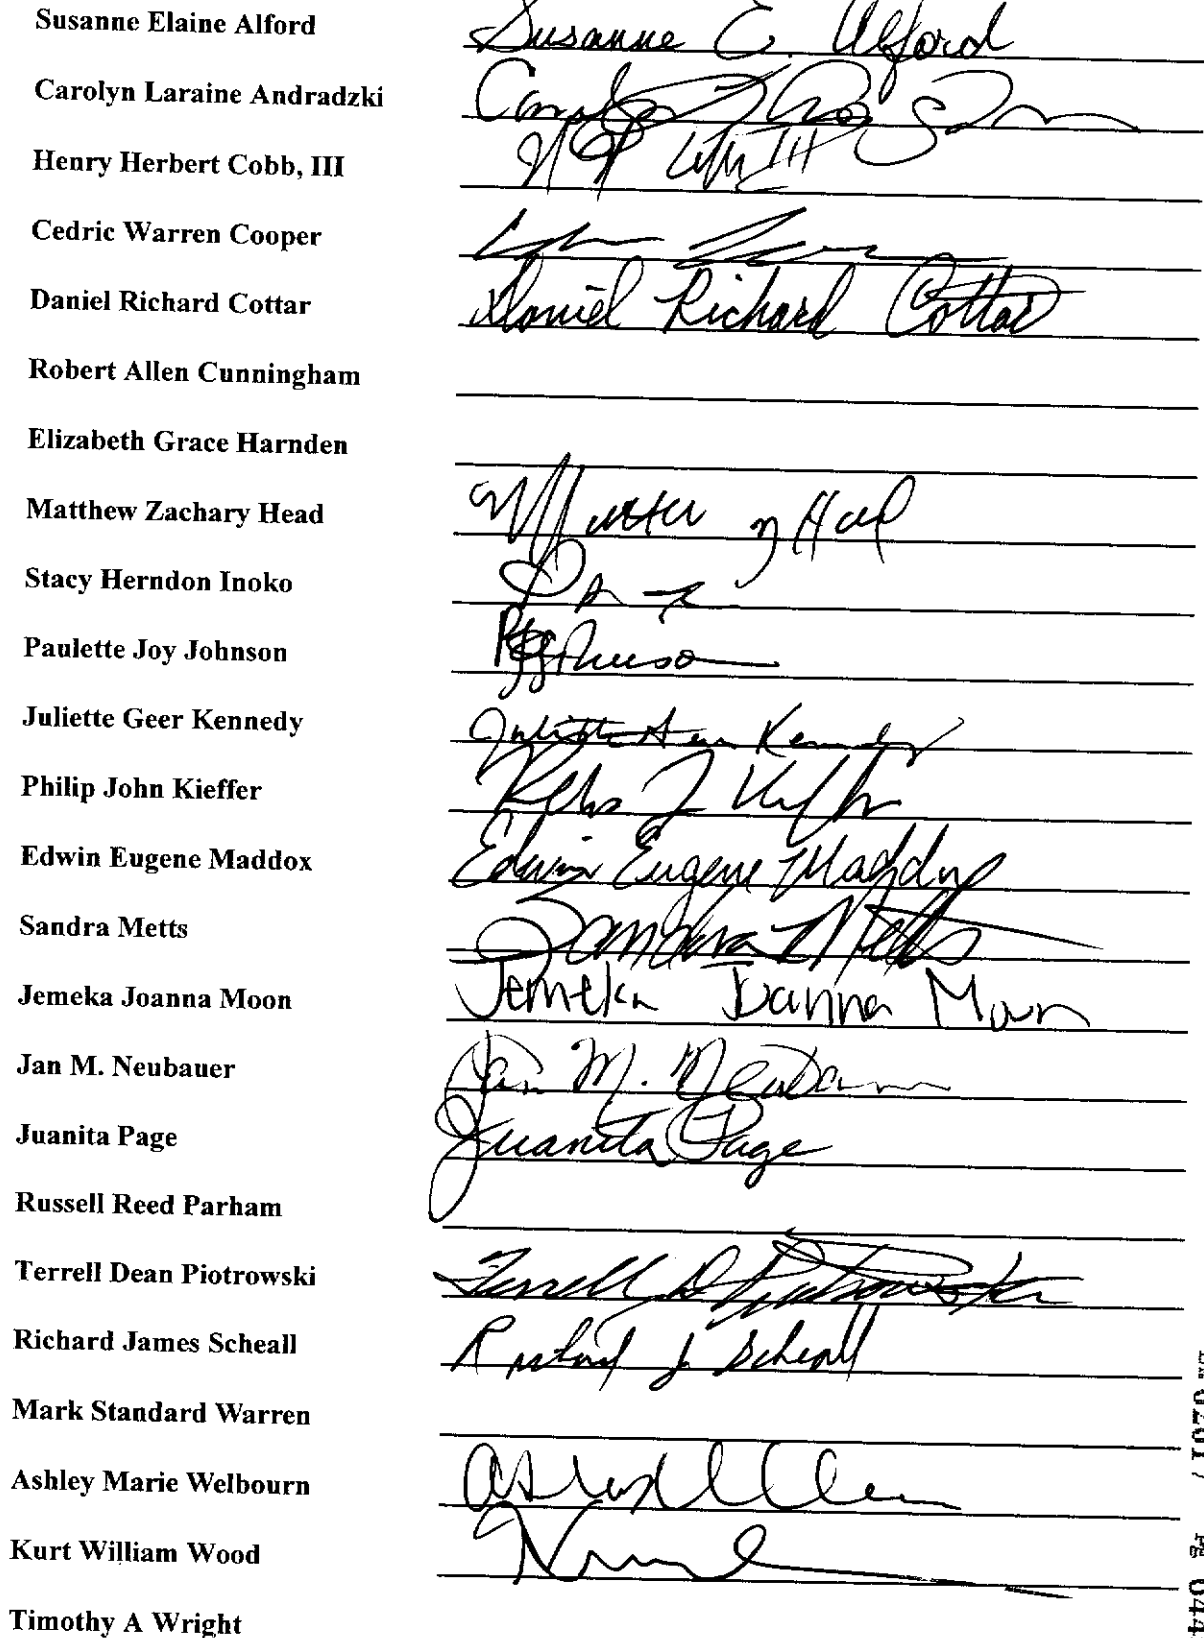 Susanne Elaine Alford Susanne E. Alford
Carolyn Laraine Andradzki
Henry Herbert Cobb, III III
Cedric Warren Cooper
Daniel Richard Cottar Daniel Richard Cottar
Robert Allen Cunningham
Elizabeth Grace Harnden
Matthew Zachary Head
Stacy Herndon Inoko
Paulette Joy Johnson
Juliette Geer Kennedy Juliette Kennedy
Philip John Kieffer
Edwin Eugene Maddox Edwin Eugene Maddox
Sandra Metts Sandra Metts
Jemeka Joanna Moon Jemeka Joanna Moon
Jan M. Neubauer Jan M. Neubauer
Juanita Page Juanita Page
Russell Reed Parham
Terrell Dean Piotrowski Terrell D Piotrowski
Richard James Scheall Richard J Scheall
Mark Standard Warren
Ashley Marie Welbourn
Kurt William Wood
Timothy A Wright
PG 044